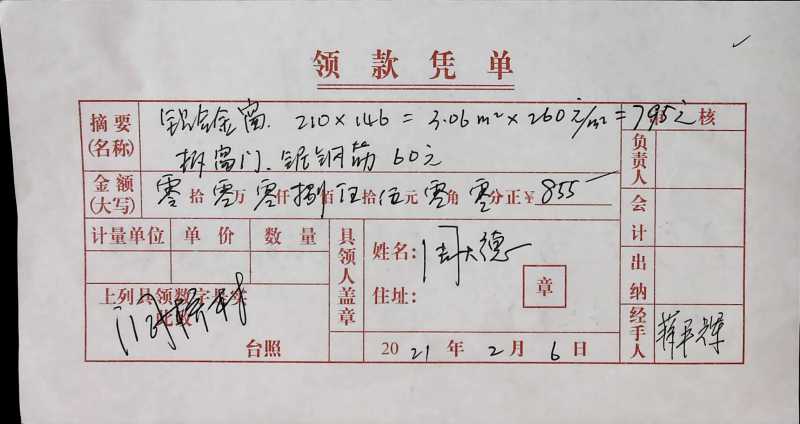 领款凭单
摘要(名称) 铝合金窗. 210×146 = 3.06m²×260元/m² = 795元 核
拆窗门. 锯钢筋 60元
金额(大写) 零拾零万零仟捌佰伍拾伍元零角零分正¥855
计量单位 单价 数量 具领人盖章 姓名:周大德
住址: 章
负责人
会计
出纳
经手人 蒋平辉
上列具领数字是实
此致
台照
2021年2月6日